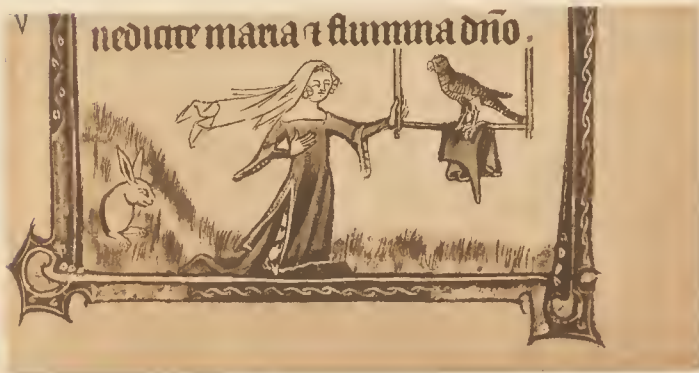 nedicite maria ⁊ flumina dño.